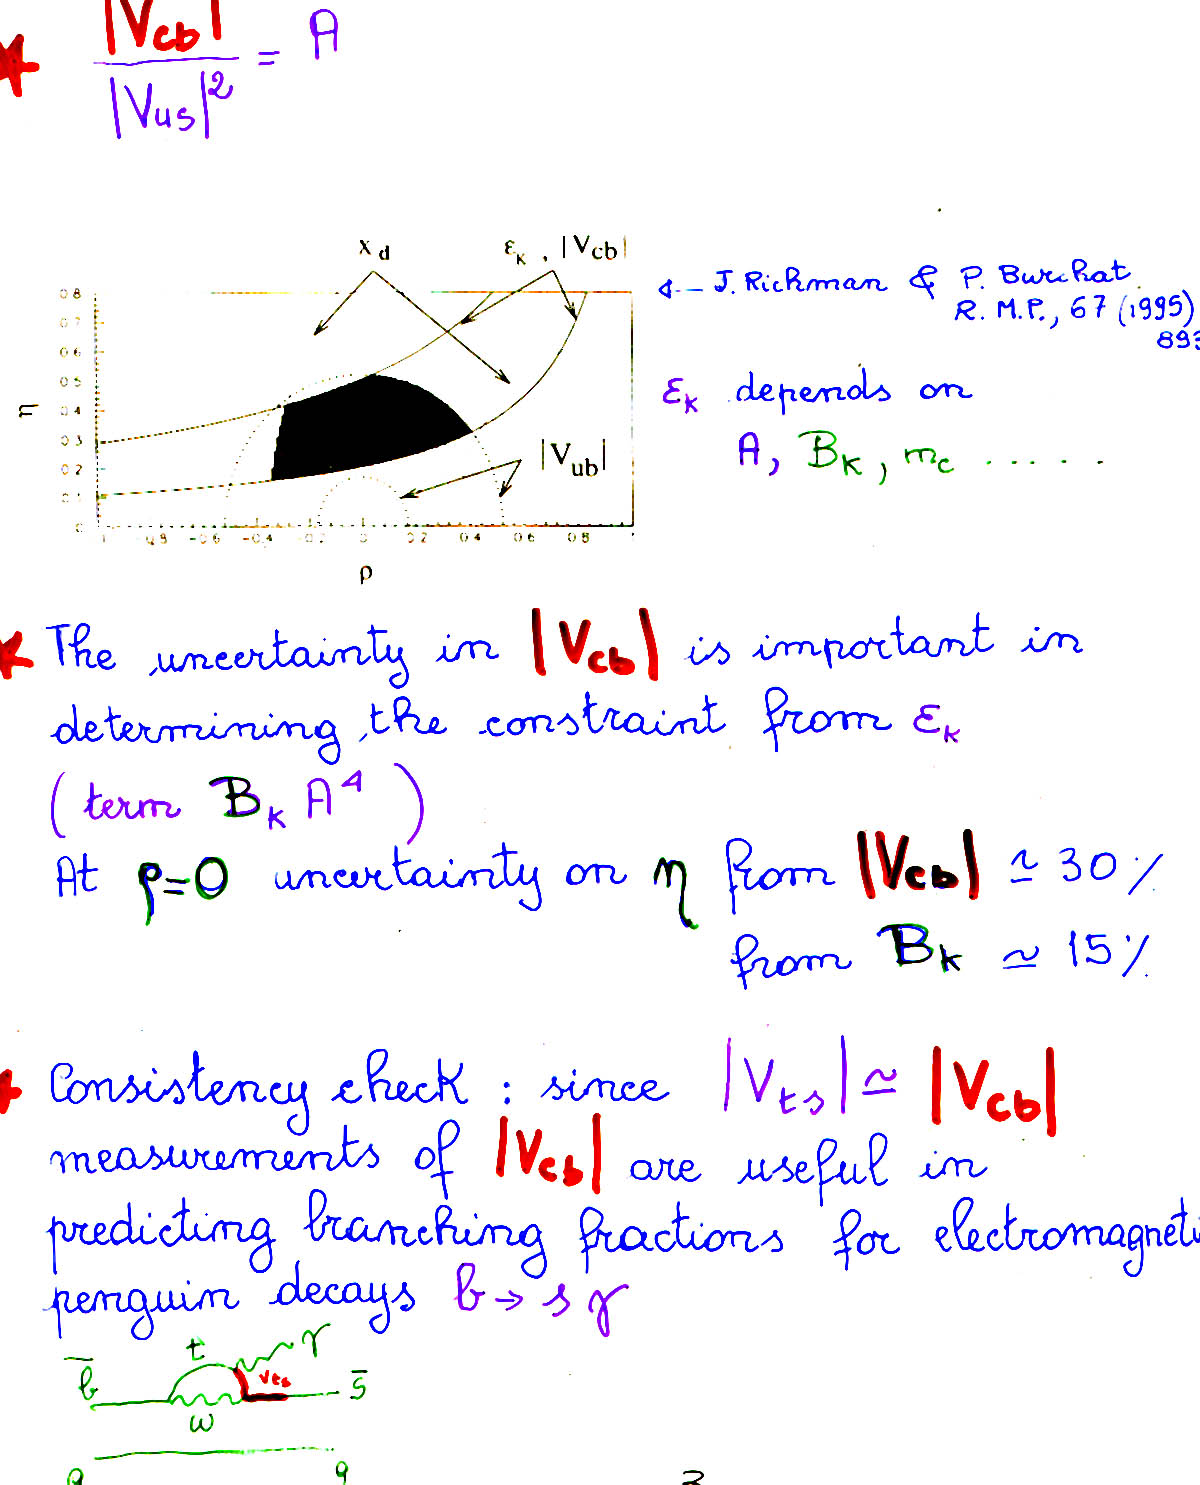 |Vcb|
|Vus|² = A
x d
εK , |Vcb|
0.8
0.7
0.6
0.5
0.4
0.3
0.2
0.1
0
η
|Vub|
-0.6 -0.4 -0.2 0 0.2 0.4 0.6 0.8
ρ
J. Richman & P. Burchat
R. M.P., 67 (1995)
893
εK depends on
A, BK, mc .....
* The uncertainty in |Vcb| is important in
determining the constraint from εK
(term BK A⁴)
At ρ=0 uncertainty on η from |Vcb| ≃ 30 %
from BK ≃ 15 %
* Consistency check : since |Vts| ≃ |Vcb|
measurements of |Vcb| are useful in
predicting branching fractions for electromagneti
penguin decays b → s γ
t γ
b̄ Vts s̄
W
q q